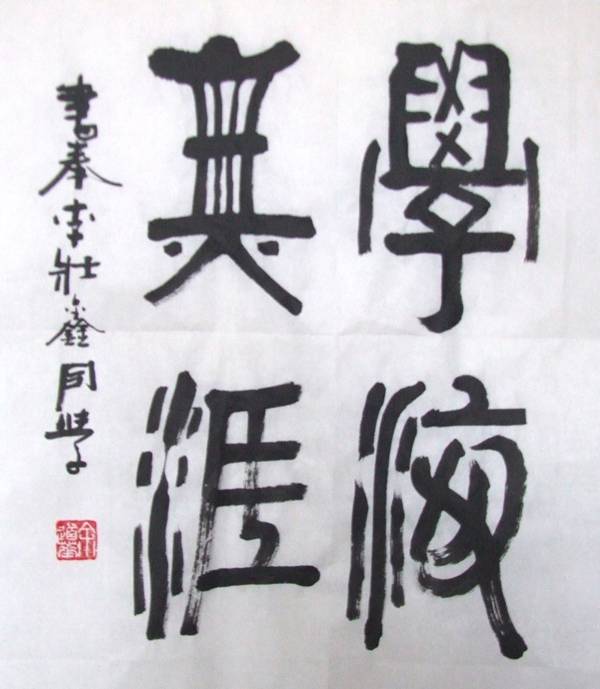 學海
無涯
書奉李壯鑫同學